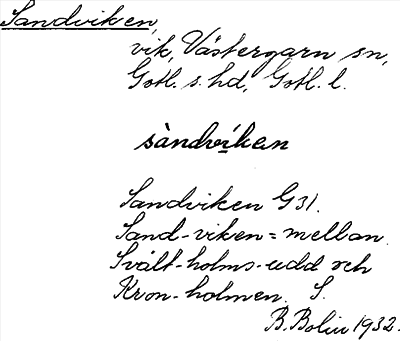 Sandviken,
vik, Västergarn sn,
Gotl. s. hd, Gotl. l.
sàndvíken
Sandviken G 31.
Sand-viken = mellan
Svält-holms-udd och
Kron-holmen. S.
B. Bolin 1932.